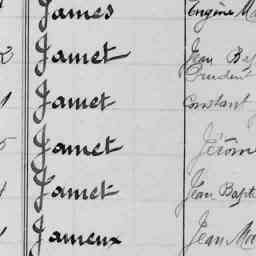 James Eugène Ma
Jamet Jean Bap
Prudent
Jamet Constant
Jamet Jérôme
Jamet Jean Bapti
Jameux Jean Ma